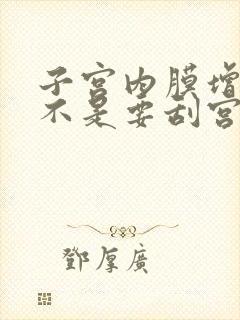 子宫内膜增
不是要刮宫
鄧厚廣